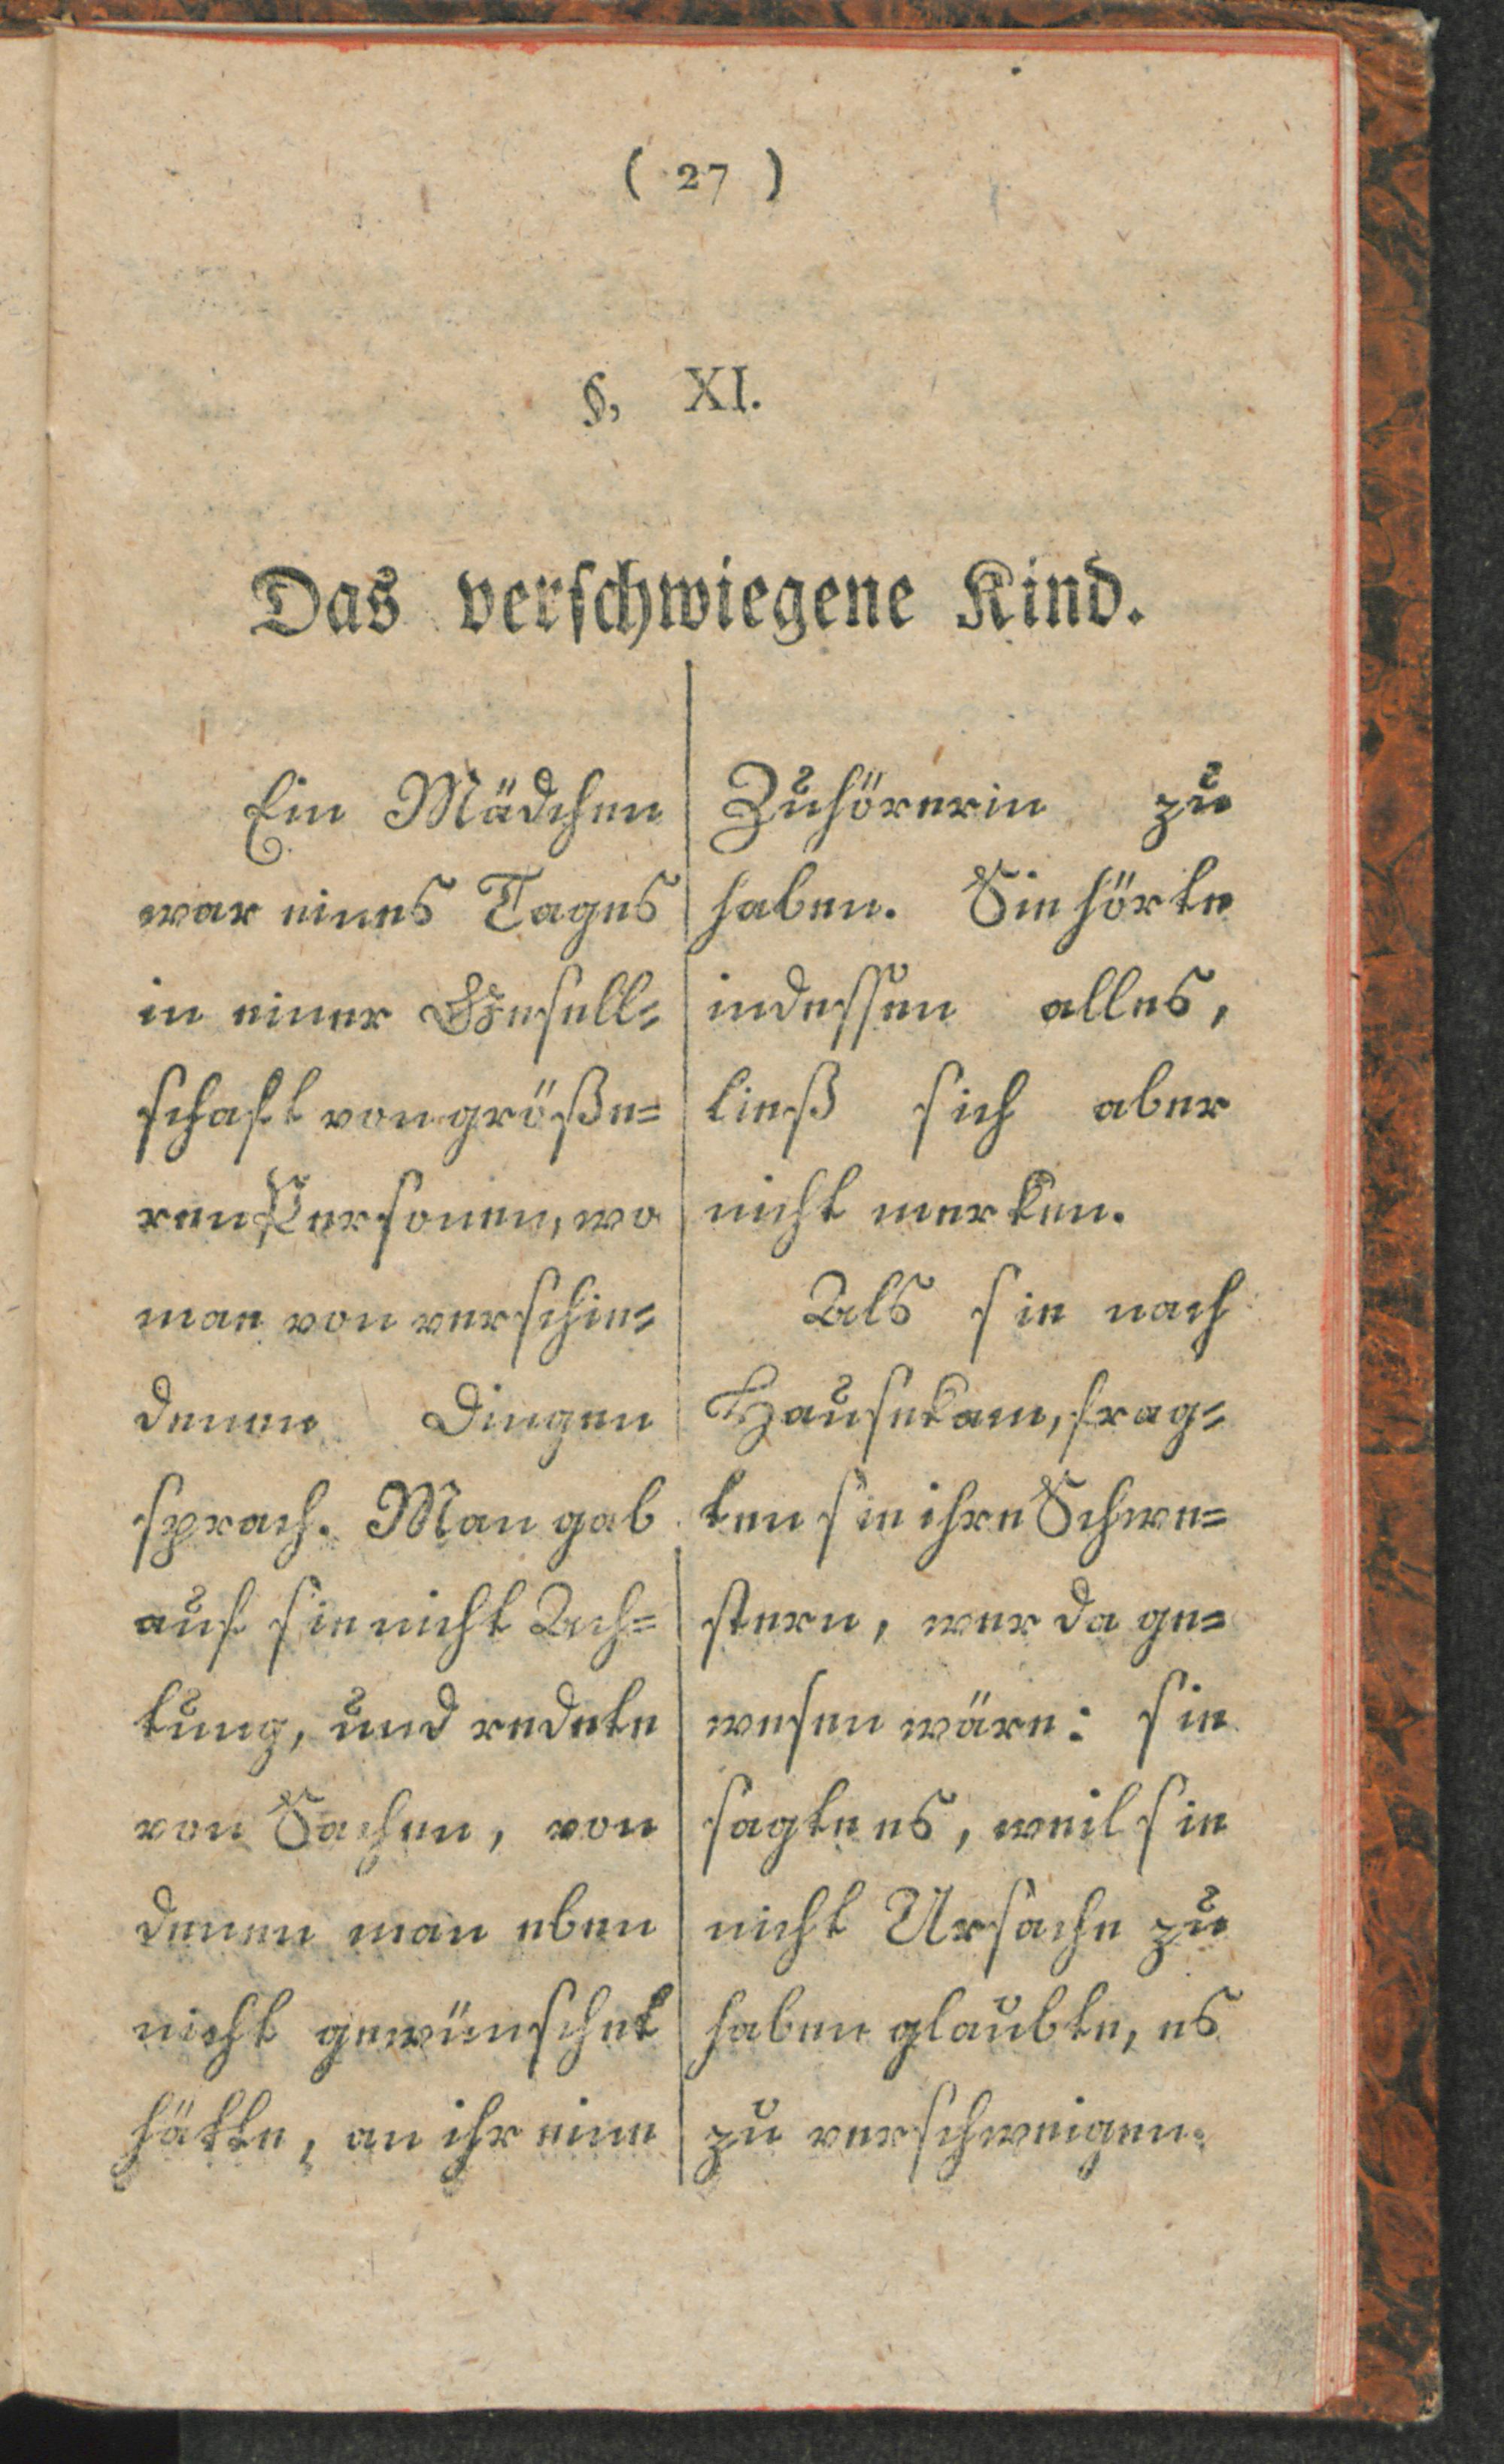 ( 27 )
§, XI.
Das verschwiegene Kind.
Ein Mädchen
war eines Tages
in einer Gesell=
schaft von größe=
ren Personen, wo
man von verschie=
denen Dingen
sprach. Man gab
auf sie nicht Ach=
tung, und redete
von Sachen, von
denen man eben
nicht gewünschet
hätte, an ihr eine
Zuhörerin zu
haben. Sie hörte
indessen alles,
ließ sich aber
nicht merken.
Als sie nach
Hause kam, frag=
ten sie ihre Schwe=
stern, wer da ge=
wesen wäre: sie
sagte es, weil sie
nicht Ursache zu
haben glaubte, es
zu verschweigen.